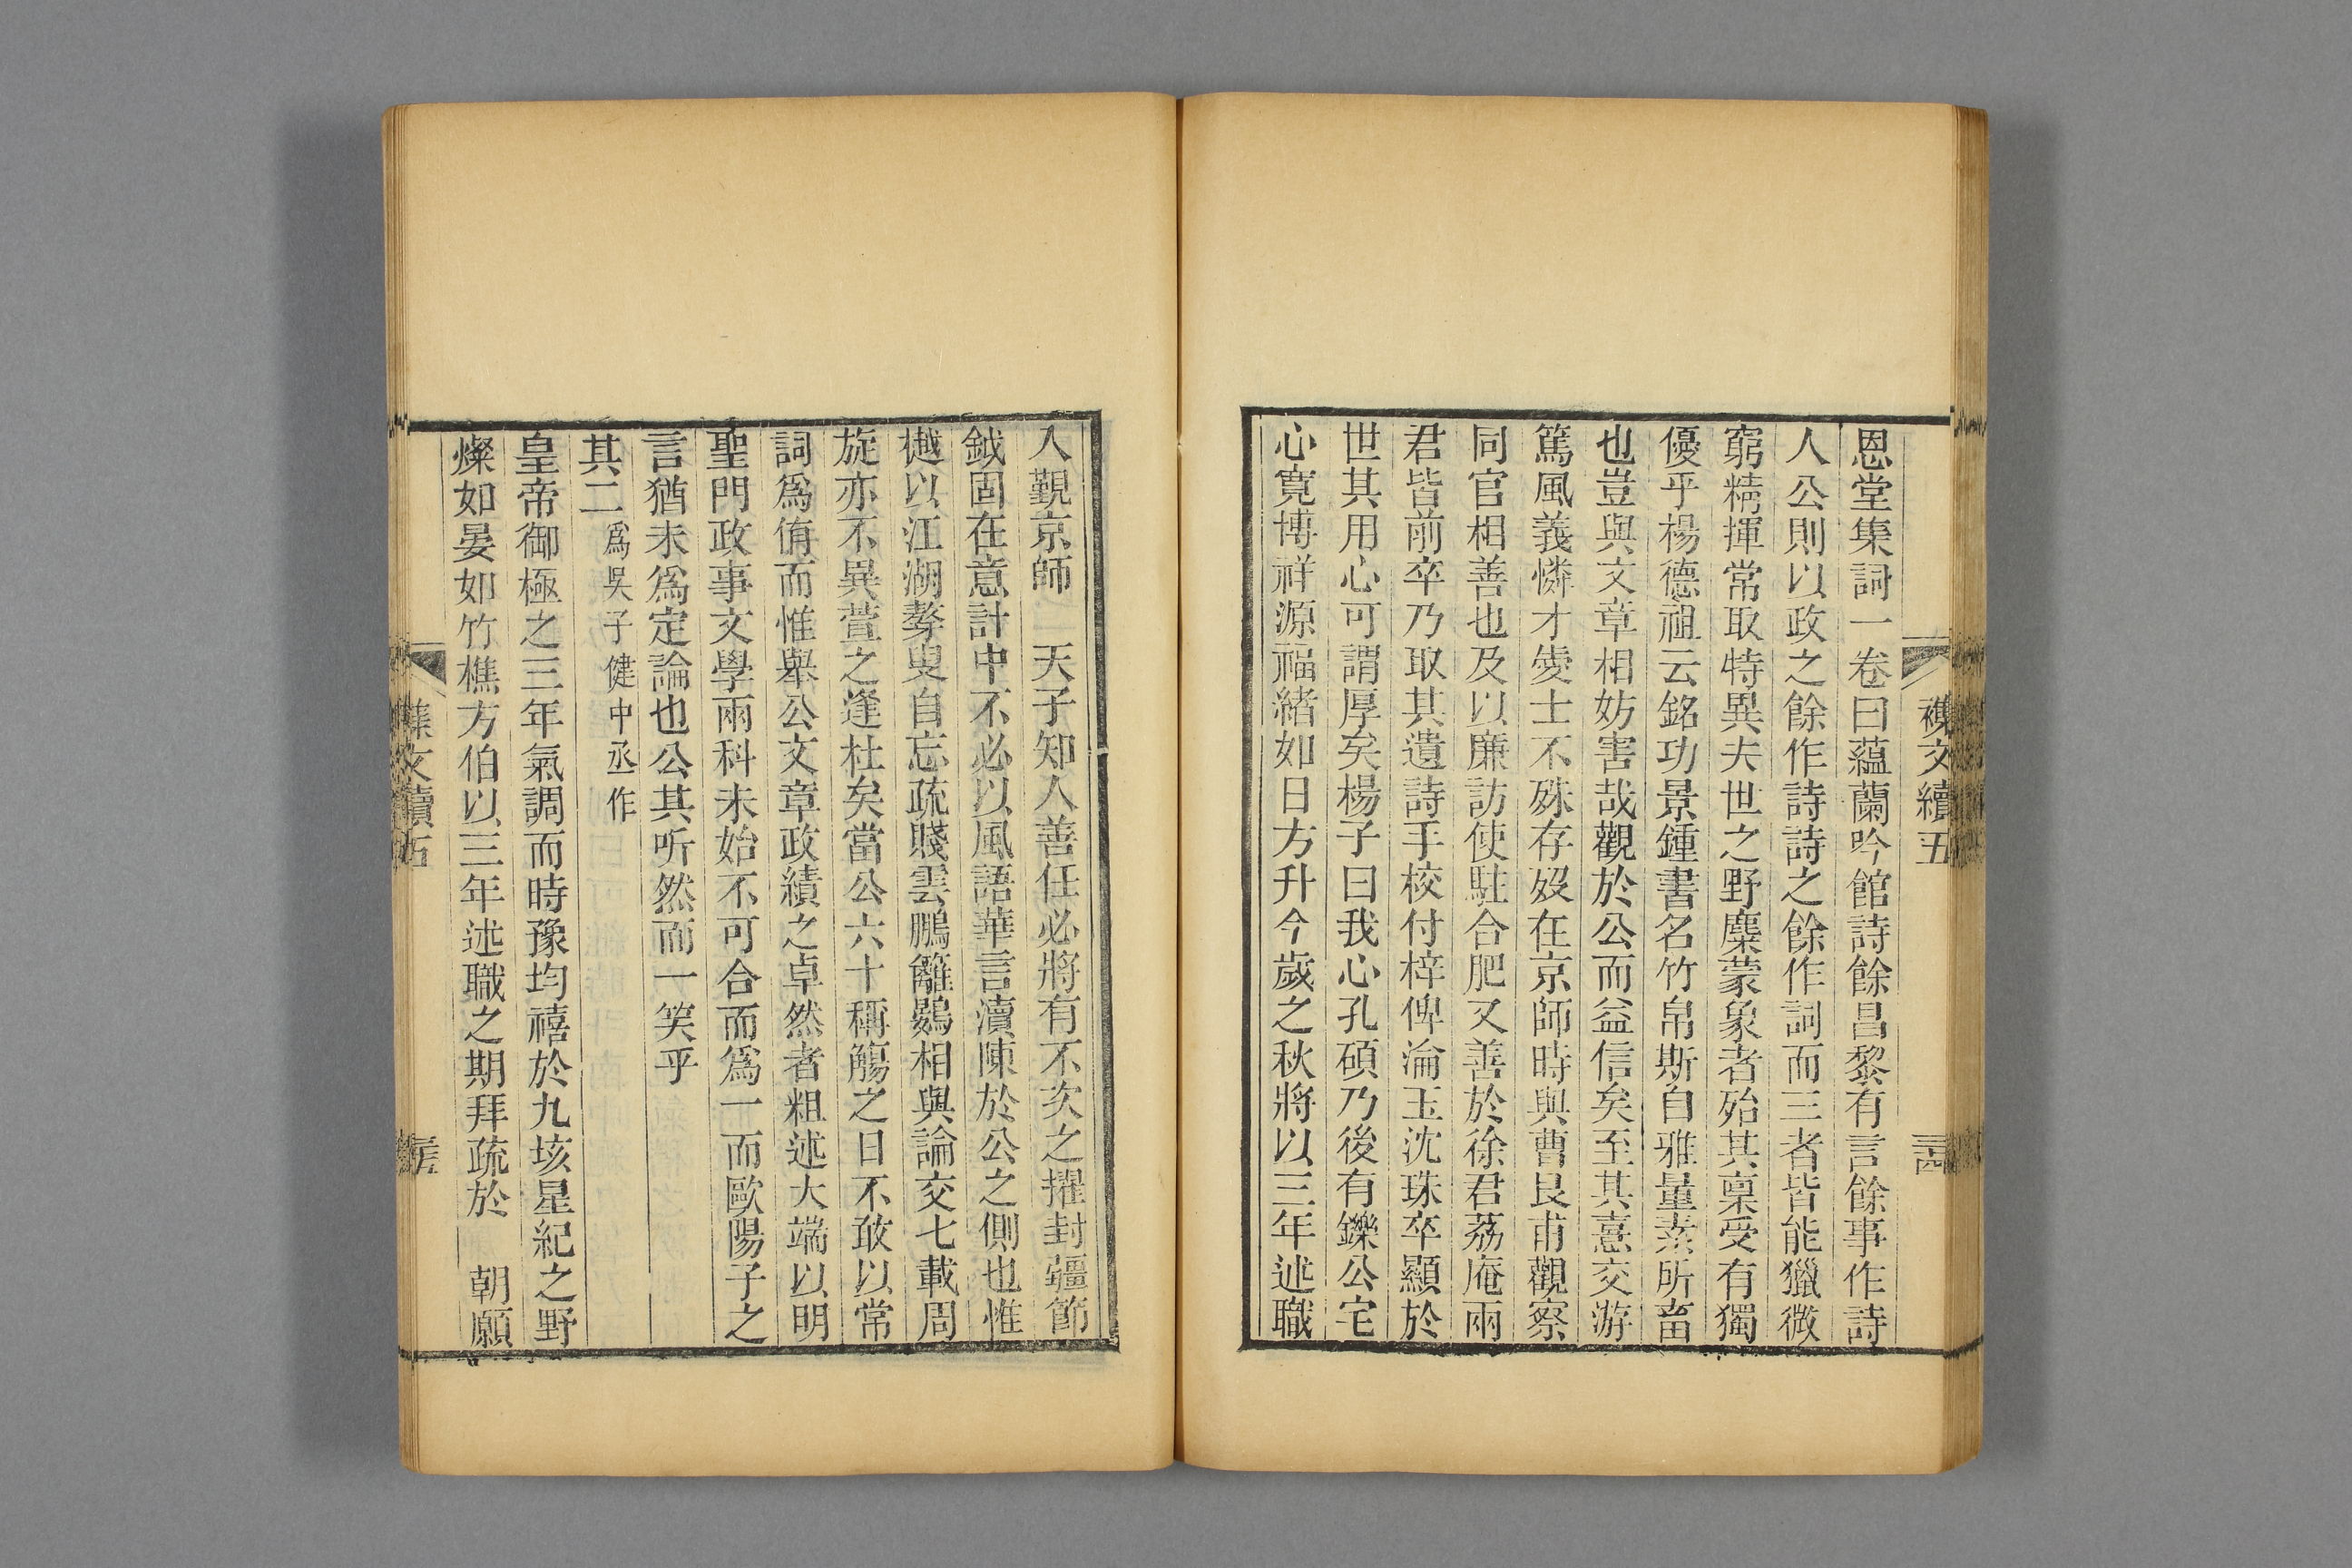 襍文續五
恩堂集詞一卷曰蘊蘭吟館詩餘昌黎有言餘事作詩
人公則以政之餘作詩詩之餘作詞而三者皆能獵微
窮精揮常取特異夫世之野麋蒙象者殆其稟受有獨
優乎楊德祖云銘功景鍾書名竹帛斯自雅量素所畜
也豈與文章相妨害哉觀於公而益信矣至其憙交游
篤風義憐才愛士不殊存歿在京師時與曹艮甫觀察
同官相善也及以廉訪使駐合肥又善於徐君荔庵兩
君皆前卒乃取其遺詩手校付梓俾淪玉沈珠卒顯於
世其用心可謂厚矣楊子曰我心孔碩乃後有鑠公宅
心寛博祥源福緒如日方升今歲之秋將以三年述職
入覲京師　天子知人善任必將有不次之擢封疆節
鉞固在意計中不必以風語華言瀆陳於公之側也惟
樾以江湖嫠叟自忘疏賤雲鵬籬鷃相與論交七載周
旋亦不異萱之逢杜矣當公六十稱觴之日不敢以常
詞爲侑而惟舉公文章政績之卓然者粗述大端以明
聖門政事文學兩科未始不可合而爲一而歐陽子之
言猶未爲定論也公其听然而一笑乎
其二 爲吳子健中丞作
皇帝御極之三年氣調而時豫均禧於九垓星紀之野
燦如晏如竹樵方伯以三年述職之期拜疏於　朝願